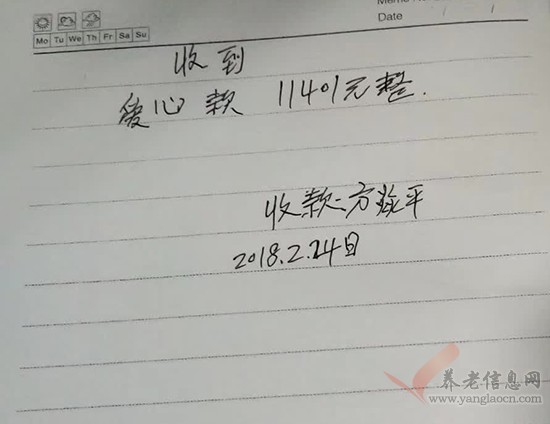 Date / /
Mo Tu We Th Fr Sa Su
收到
爱心款 11401元整.
收款:方 平
2018.2.24日
养老信息网
www.yanglaocn.com